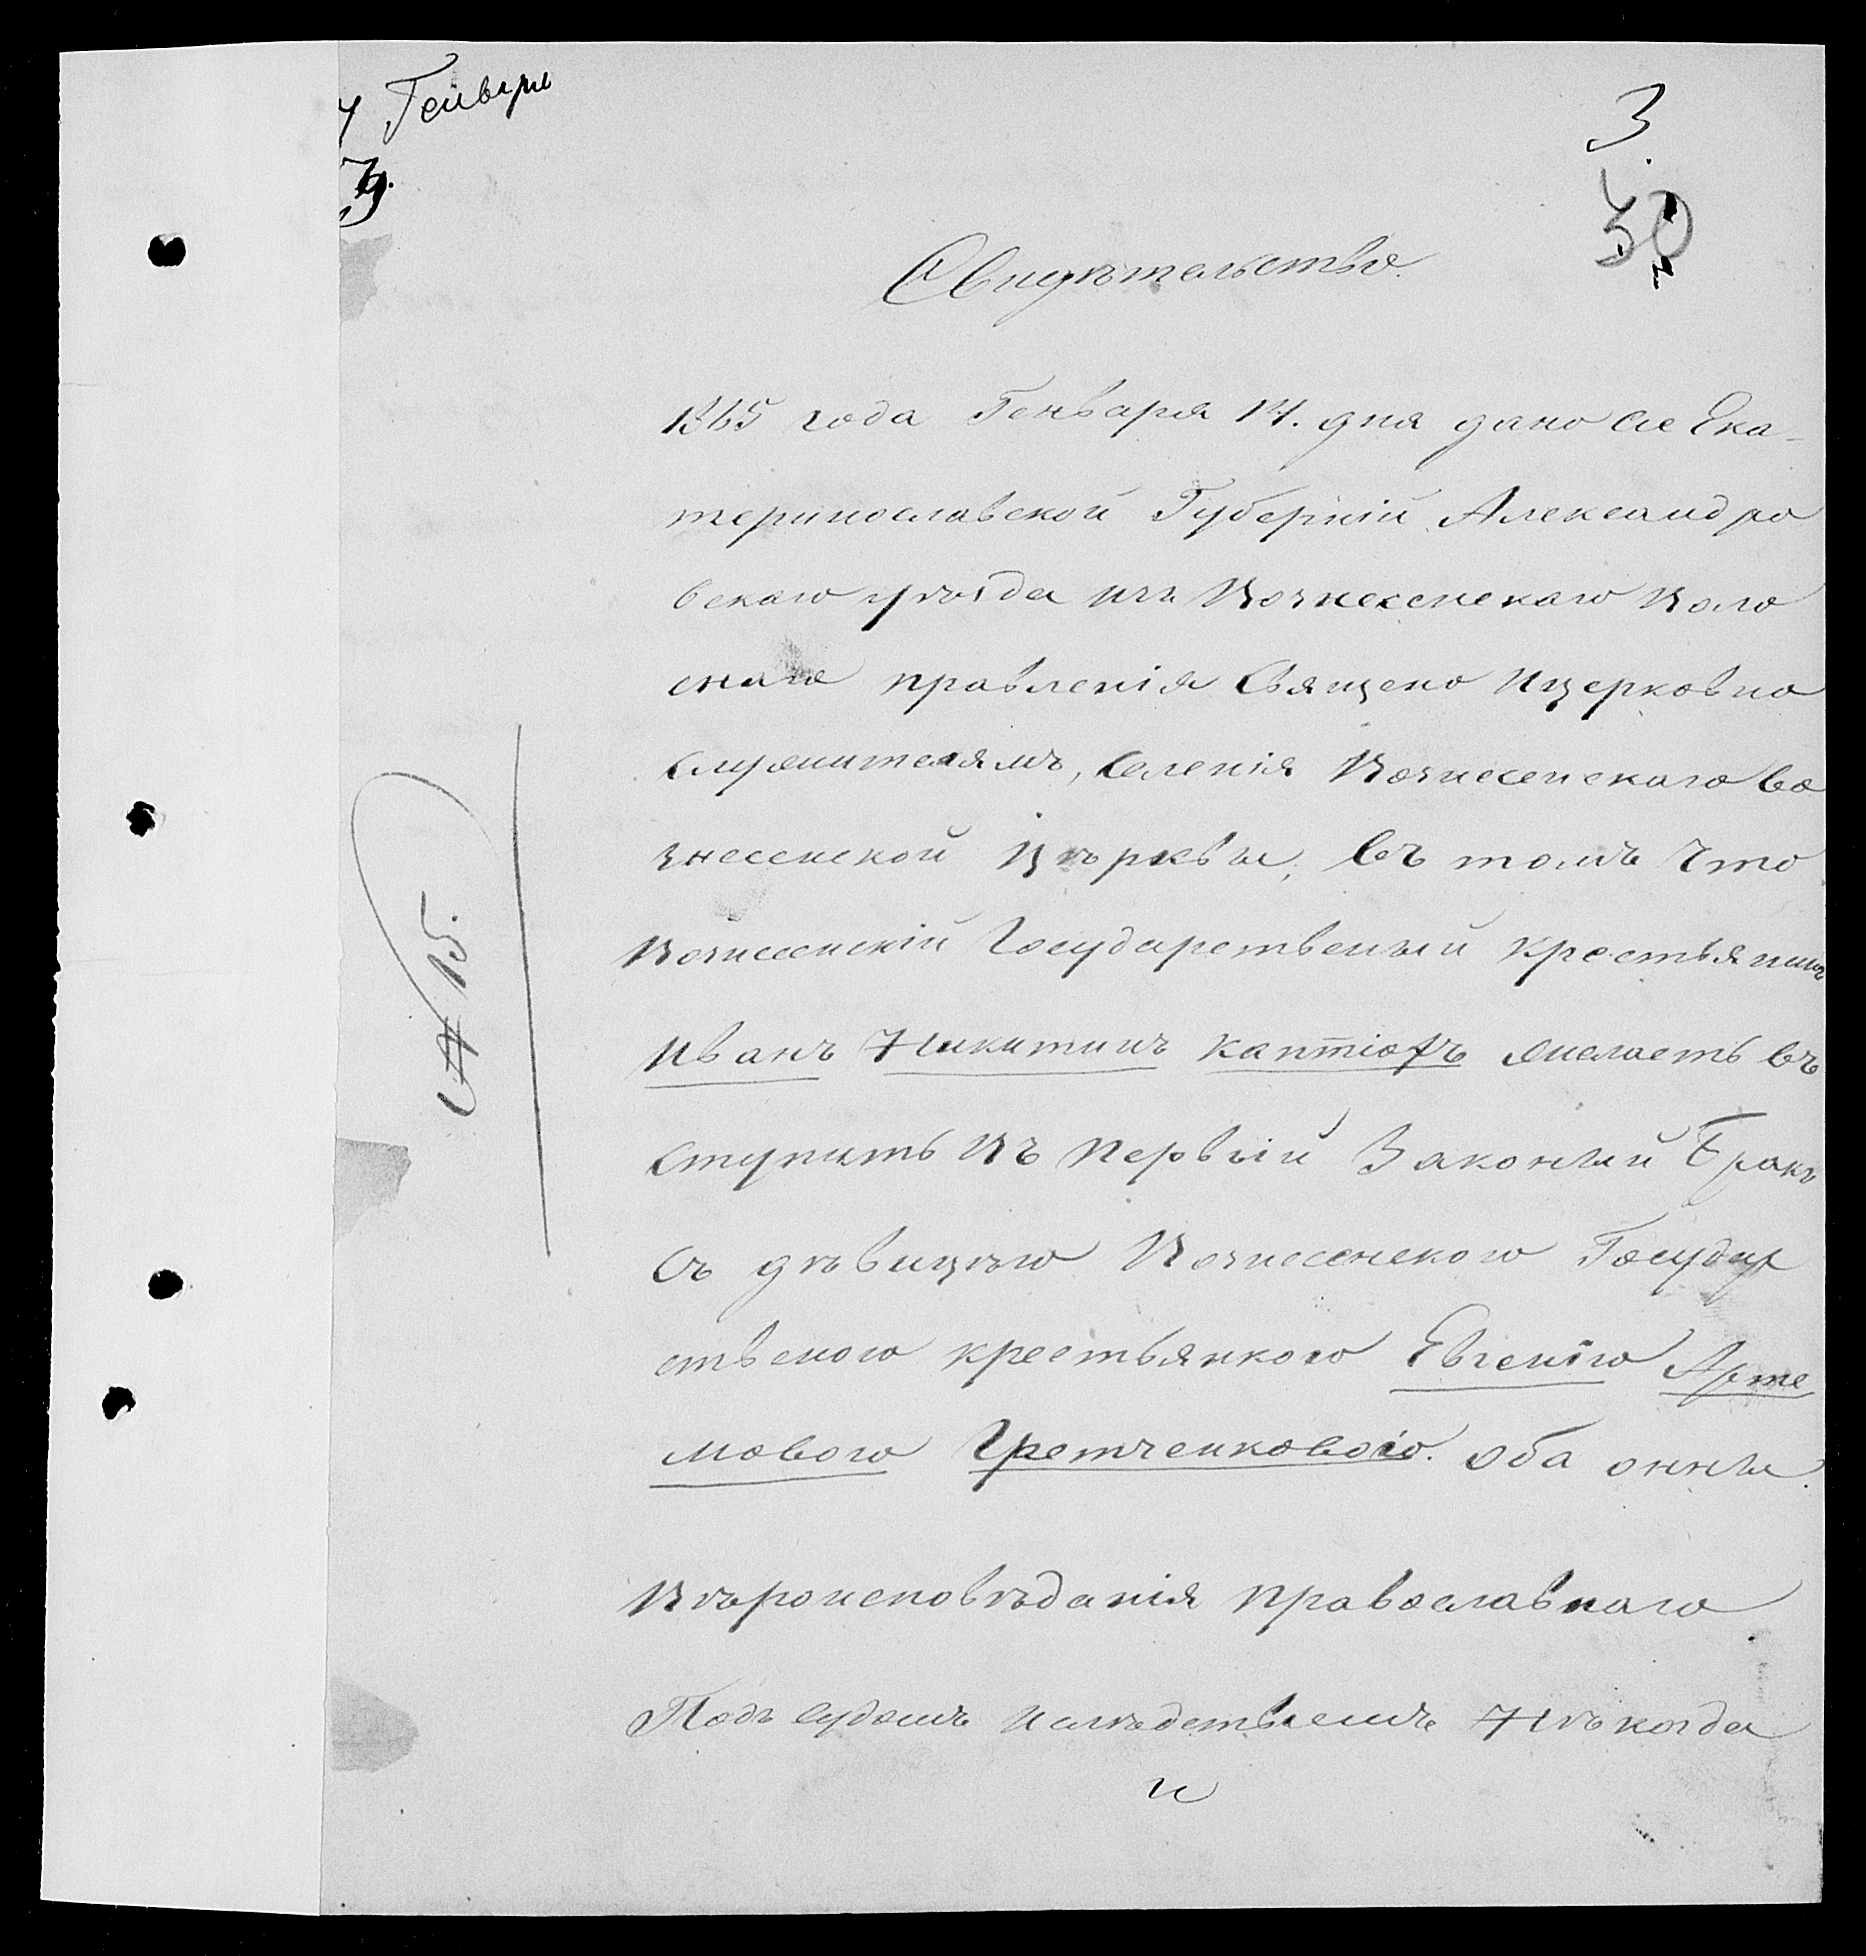 Генваря
3
30
Свидѣтельство.
1865 года Генваря 14. дня дано сіе Ека-
теринославской Губерніи Александро
вскаго уѣзда изъ Вознесенскаго Воло
снаго правленія Священо Ицерковно
служителямъ, Селенія Вознесенскаго во
знесенской Цѣрквы, въ томъ что
Вознесенскій Государственый крестьянинъ
Иванъ Никитинъ Каптіохъ желаетъ въ
ступить Въ Первый Законый Бракъ
Съ дѣвицѣю Вознесенскою Государ
ственою крестьянкою Евгенію Арте
мовою Гретченковою. оба онны
Вѣроисповѣданія православнаго
Подъ СудомъИслѣдствіемъ Нѣкогда
и
№ 15.